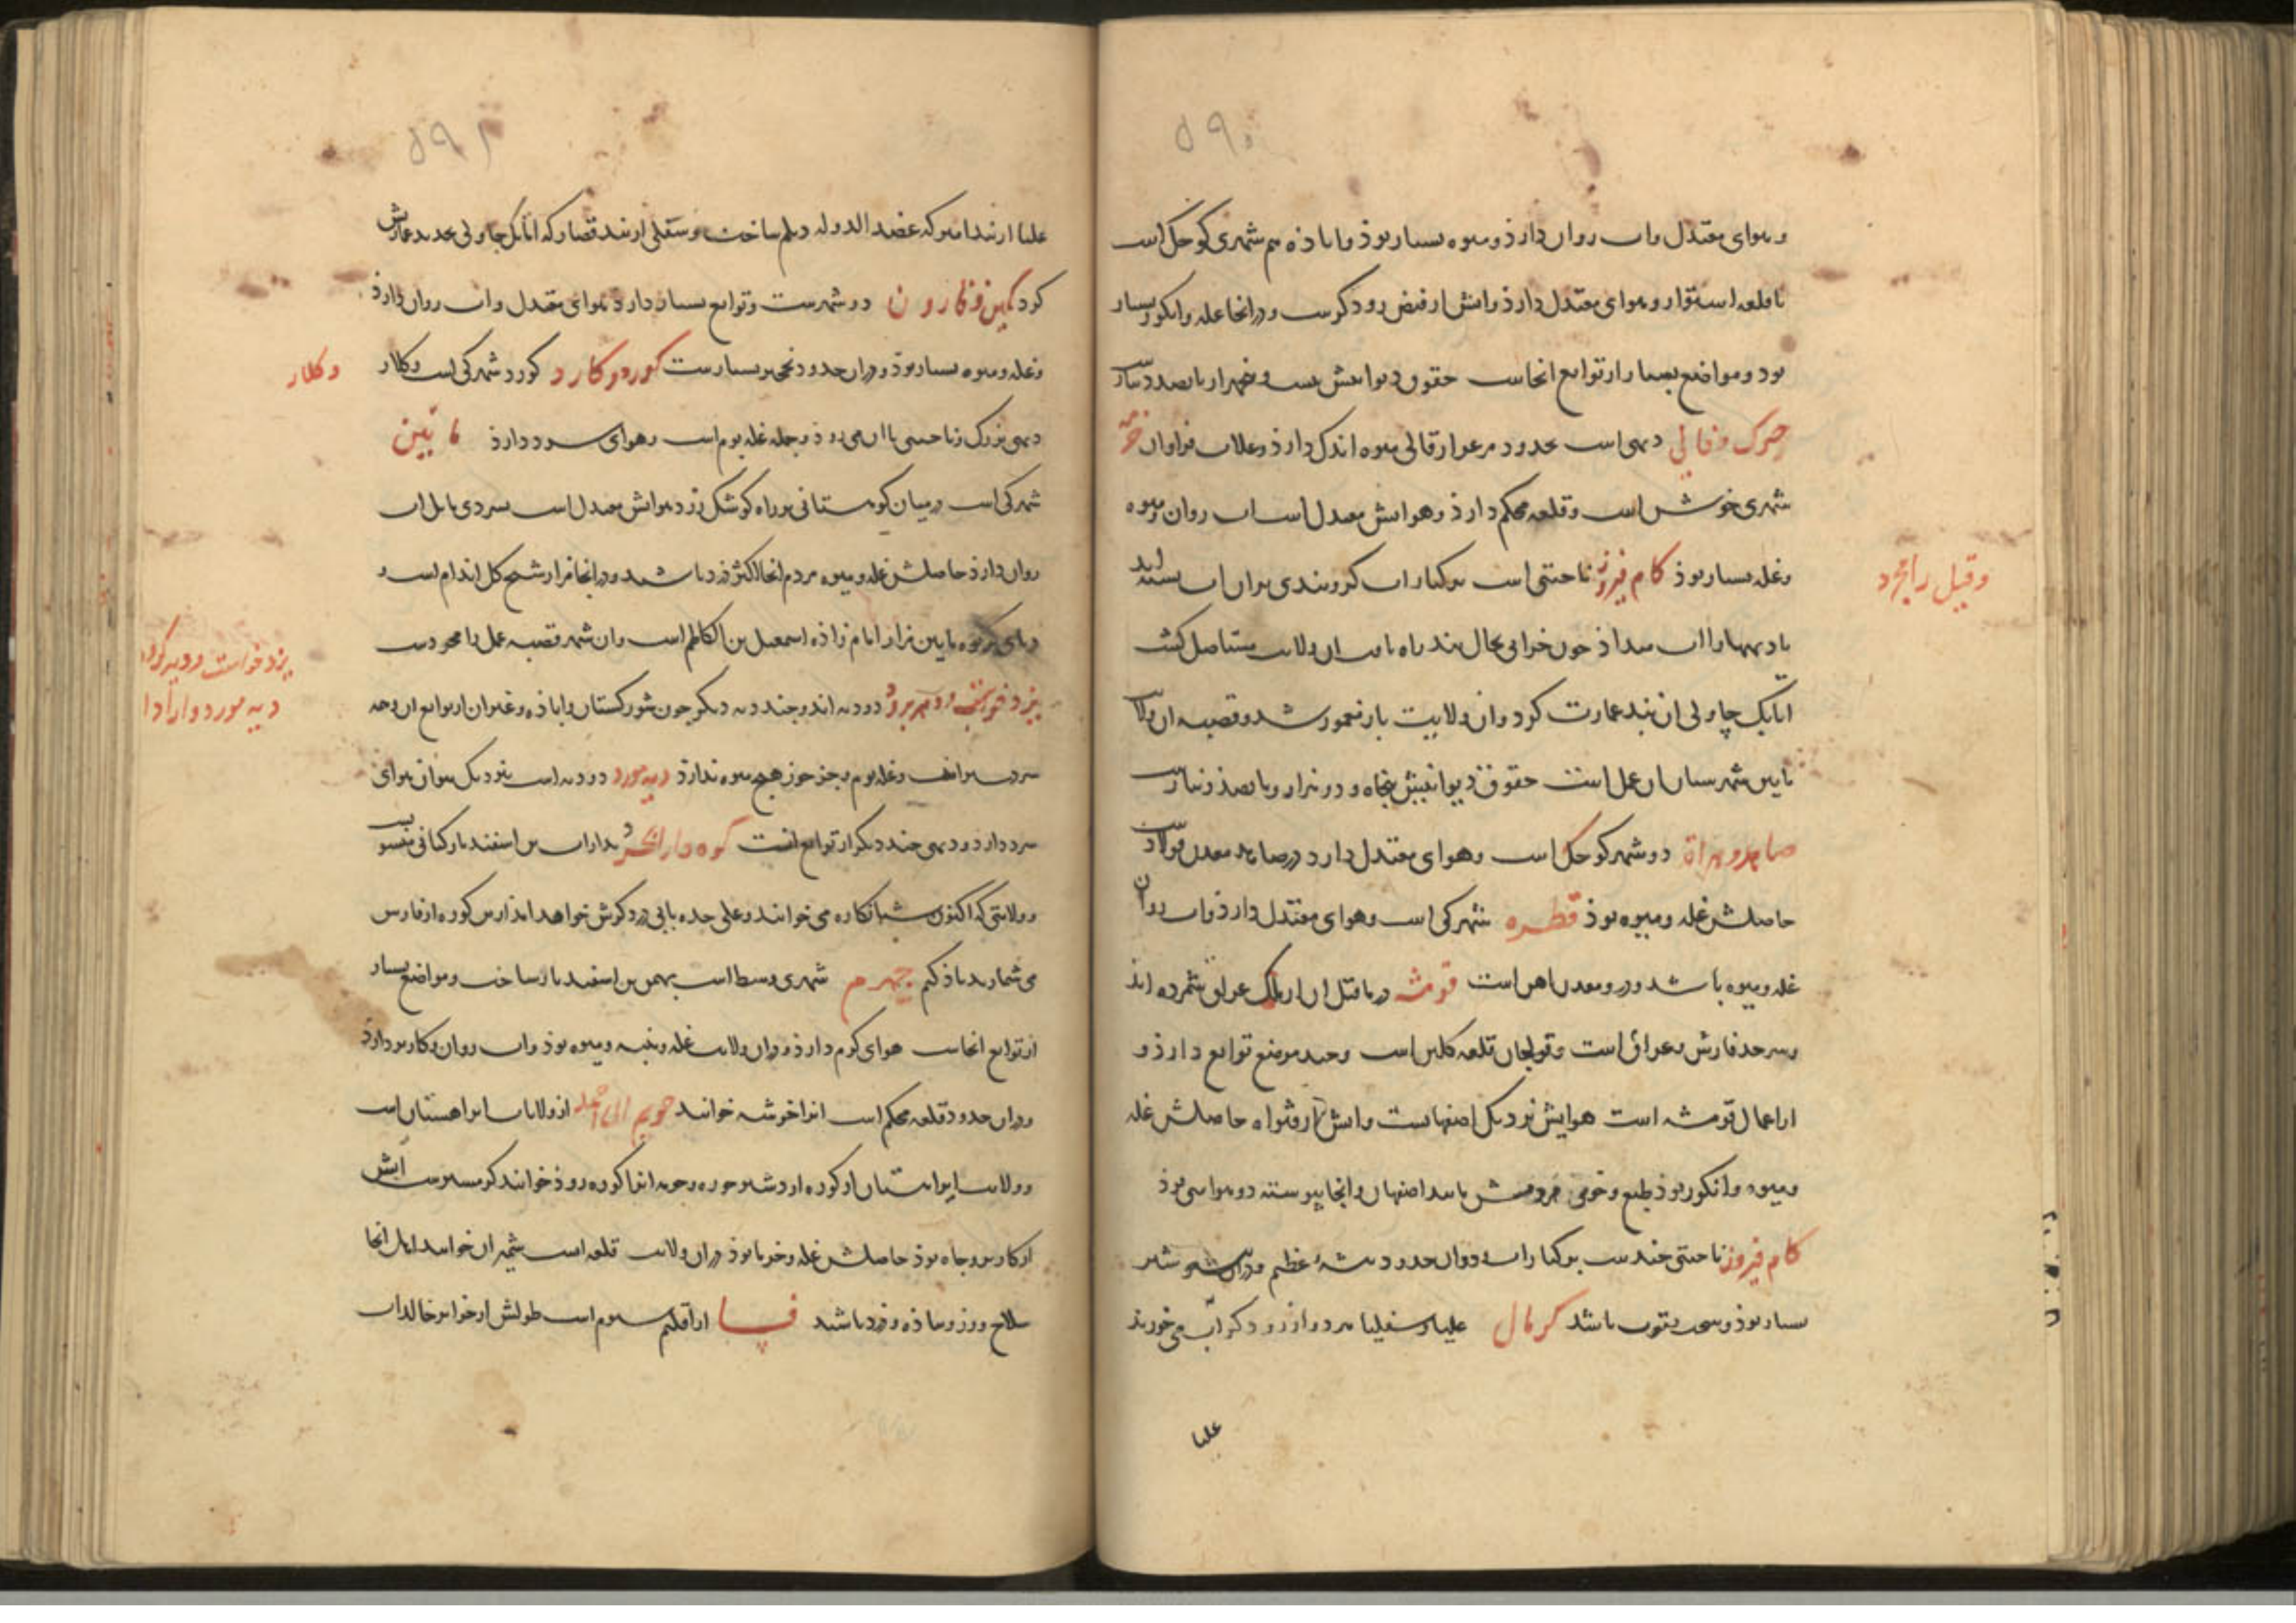 ۵۹۰
و هوای معتدل و آب روان دارذ و میوه بسیار بوذ و اباذه هم شهری کوچک است
با قلعه استوار و هوای معتدل دارذ و آبش از فیض رود کرست و در انجا غله و انکور بسیار
بود و مواضع بسیار از توابع انجاست حقوق دیوانیش
دیهی است بحدود قالی میوه اندک دارذ و غلات فراوان
شهری خوش است و قلعه محکم دارذ و هوایش معتدل است اب روان و میوه
و غله بسیار بوذ کام فیروز ناحیتی است بر کنار اب کر و بندی بران اب بسته اند
وقیل رامجرد
تا دیهها را اب میداذ چون خرابی بحال بند راه یافت ان ولایت مستاصل کشت
اتابک چاولی ان بند عمارت کرد و ان ولایت باز معمور شد و قصبه ان ولایت
مایین شهرستان ان عمل است حقوق دیوانیش پنجاه و دو هزار و پانصذ دینارست
صاهه و هراة دو شهر کوچک است و هوای معتدل دارد در صاهه معدن فولاد
حاصلش غله و میوه بوذ قطره شهرکی است و هوای معتدل دارذ و اب روان
غله و میوه باشد و در و معدن اهن است قومشه در ماقبل ان از ملک عراق شمرده اند
و سرحد فارس و عراق است و قولنجان قلعه کلین است و چند موضع توابع دارذ و
از اعمال قومشه است هوایش نزدیک اصفهانست و ابش از قنواه حاصلش غله
و میوه و انکور بوذ طبع و خوی مردمش مانند اصفهان و انجا پیوسته دو هوایی بوذ
کام فیروز ناحیتی چندست بر کنار اب و دران حدود بیشه عظیم و دران بیشه شیر
بسیار بوذ و سخت بقوت باشد کربال علیا و سفلیا هر دو از رود کر آب می خورند
علیا
۵۹۱
علیا از بند امیر که عضد الدوله دیلم ساخت و سفلی از بند قصار که اتابک چاولی تجدید عمارتش
کرد کمین و فارون دو شهرست و توابع بسیار دارد هوای معتدل و اب روان دارذ
و غله و میوه بسیار بوذ و دران حدود نخچیر بسیارست کورد و کارد کورد شهرکی است و کلار
وکلار
دیهی بزرک و ناحیتی با ان می رود و جمله غله بوم است و هوای سرد دارذ مایین
شهرکی است در میان کوهستانی بر راه کوشک زرد هوایش معتدل است بسردی مایل اب
روان دارذ حاصلش غله و میوه مردم انجا اکثر دزد باشند و در انجا مزار شیخ کل اندام است و
در پای کریوه مایین مزار امام زاذه اسمعیل بن الکاظم است و ان شهر قصبه عمل رامجردست
دو دیه اند و چند دیه دیکر چون شورکستان و اباذه و غیر ان از توابع ان و همه
یزدخواست و دیه کورد
دیه مورد وارادا
سردسیر اند و غله بوم و بجز جوز هیچ میوه ندارذ دیه مورد دو دیه است نزدیک بوان هوای
سرد دارد و دیهی چند دیکر از توابع انست کوره دارابجرد بداراب بن اسفندیار کیانی منسوب
و ولایتی که اکنون شبانکاره می خوانند و علی حده بابی در ذکرش خواهد امد ازین کوره از فارس
می شمارند یاذ کنم جهرم شهری وسط است بهمن بن اسفندیار ساخت و مواضع بسیار
از توابع انجاست هوای کرم دارذ و دران ولایت غله و پنبه و میوه بوذ و اب روان و کاریز دارد
و دران حدود قلعه محکم است انرا خورشه خوانند جویم ابی احمد از ولایات ایراهستان است
و ولایت ایراهستان از کوره اردشیر خوره و جویم انرا کوره روذ خوانند کرمسیرست آبش
از کاریز و چاه بوذ حاصلش غله و خرما بوذ دران ولایت قلعه است شمیران خوانند اهل انجا
سلاح ورز و پیاذه و دزد باشند فسا از اقلیم سیوم است طولش از جزایر خالدات